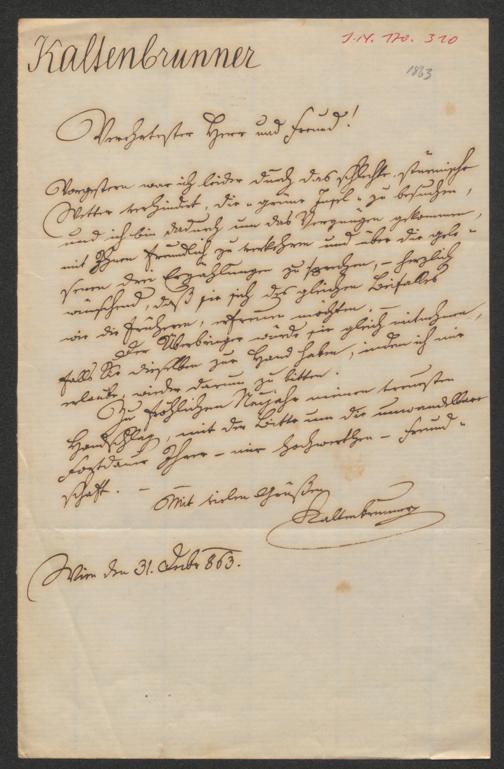 Kaltenbrunner
I.N. 170.310
1863
Verehrtester Herr und Freund!
Vorgestern war ich leider durch das schlechte, stürmische
Wetter verhindert, die „grüne Insel" zu besuchen,
und ich bin dadurch um das Vergnügen gekommen,
mit Ihnen freundlich zu verkehren und über die gele-
senen drei Erzählungen zu sprechen, – herzlich
wünschend, daß sie sich des gleichen Beifalles
wie die früheren, erfreuen möchten. –
Der Überbringer würde sie gleich mitnehmen,
falls Sie dieselben zur Hand haben, indem ich mir
erlaube, wieder darum zu bitten.
Zum fröhlichen Neujahr meinen treuesten
Handschlag, mit der Bitte um die unwandelbare
Fortdauer Ihrer – mir hochwerthen – Freund-
schaft. –
Mit vielen Grüßen
Kaltenbrunner
Wien den 31. Dezbr 863.